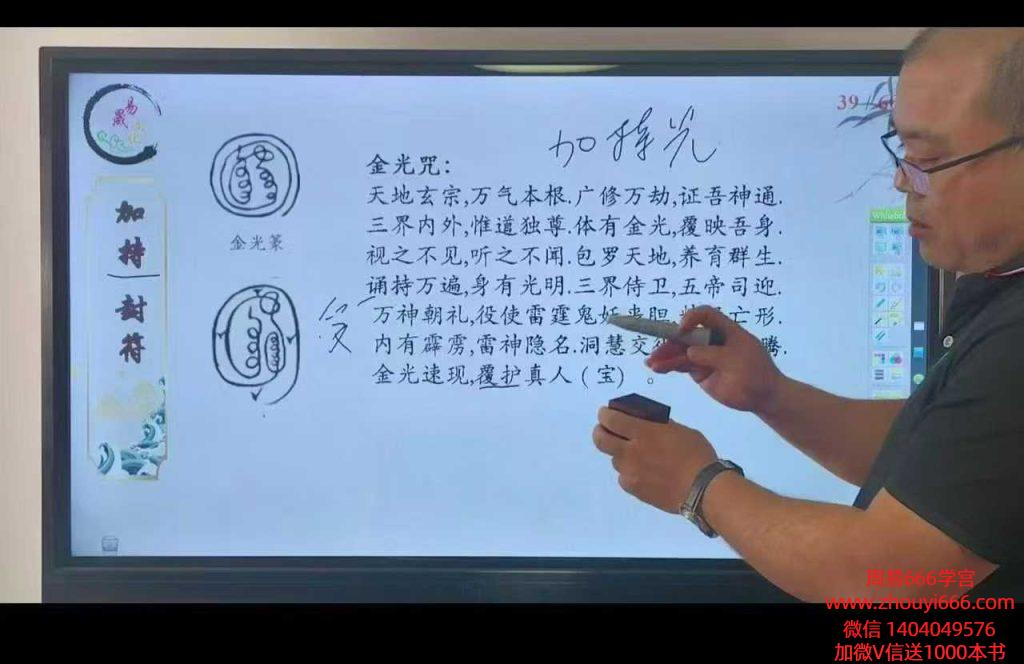 39 /
加持光
金光咒:
天地玄宗,万气本根.广修万劫,证吾神通.
三界内外,惟道独尊.体有金光,覆映吾身.
视之不见,听之不闻.包罗天地,养育群生.
诵持万遍,身有光明.三界侍卫,五帝司迎.
万神朝礼,役使雷霆鬼 亡形.
内有霹雳,雷神隐名.洞慧交 腾.
金光速现,覆护真人(宝)。
金光篆
加持封符
周易666学宫
www.zhouyi666.com
微信 1404049576
加微V信送1000本书